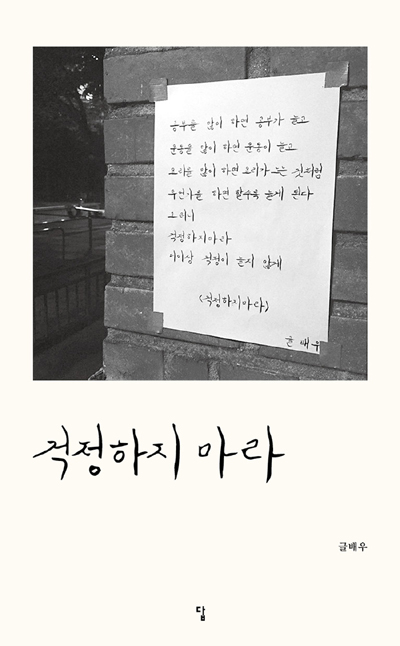 공부를 많이 하면 공부가 늘고
운동을 많이 하면 운동이 늘고
요리를 많이 하면 요리가 느는 것처럼
무언가를 하면 할수록 늘게 된다
그러니
걱정하지마라
더이상 걱정이 늘지 않게
<걱정하지마라>
글배우
걱정하지 마라
글배우
답